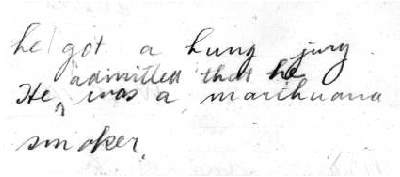 he got a hung jury.
admitted that he
He ^ was a marihuana
smoker.